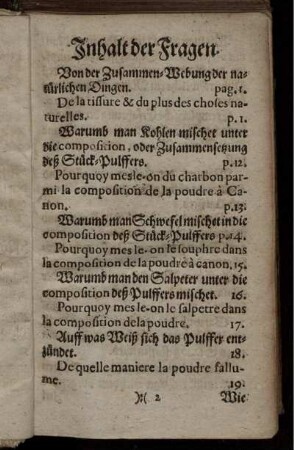 Inhalt der Fragen
Von der Zusammen-Webung der na-
türlichen Dingen. pag. 1.
De la tissure & du plus des choses na-
turelles. p. 1.
Warumb man Kohlen mischet unter
die composition, oder Zusammensetzung
deß Stück-Pulffers. p. 12.
Pourquoy mesle-on du charbon par-
mi la composition de la poudre à Ca-
non. p. 13.
Warumb man Schwefel mischet in die
composition deß Stück-Pulffers p. 14.
Pourquoy mesle-on le souphre dans
la composition de la poudre à canon. 15.
Warumb man den Salpeter unter die
composition deß Pulffers mischet. 16.
Pourquoy mesle-on le salpetre dans
la composition de la poudre. 17.
Auff was Weiß sich das Pulffer ent-
zündet. 18.
De quelle maniere la poudre s'allu-
me. 19.
)( 2 Wie